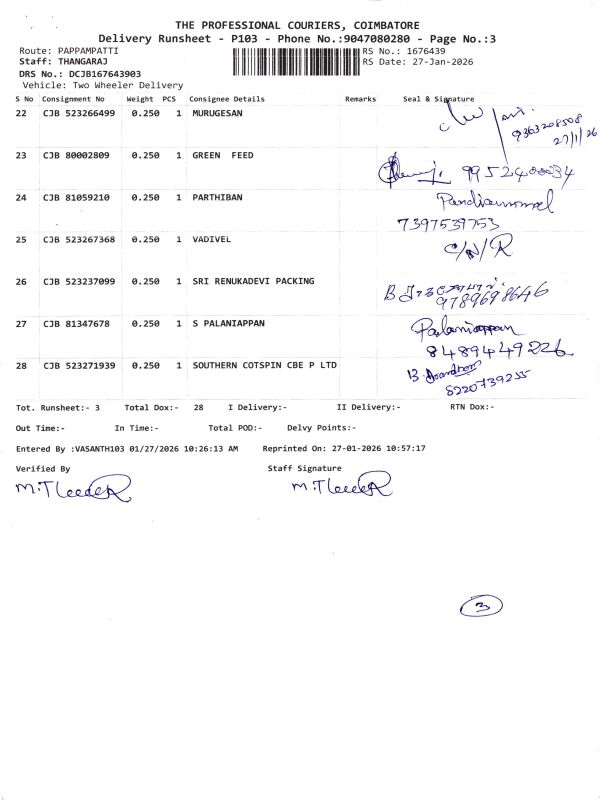 THE PROFESSIONAL COURIERS, COIMBATORE
Delivery Runsheet - P103 - Phone No.:9047080280 - Page No.:3
Route: PAPPAMPATTI
RS No.: 1676439
Staff: THANGARAJ
RS Date: 27-Jan-2026
DRS No.: DCJB167643903
Vehicle: Two Wheeler Delivery
S No Consignment No Weight PCS Consignee Details Remarks Seal & Signature
22 CJB 523266499 0.250 1 MURUGESAN
9363208508
27/1/26
23 CJB 80002809 0.250 1 GREEN FEED
9952400034
24 CJB 81059210 0.250 1 PARTHIBAN
7397539753
25 CJB 523267368 0.250 1 VADIVEL C/N/R
26 CJB 523237099 0.250 1 SRI RENUKADEVI PACKING
9789698646
27 CJB 81347678 0.250 1 S PALANIAPPAN Palaniappan
8489449226
28 CJB 523271939 0.250 1 SOUTHERN COTSPIN CBE P LTD
8220739255
Tot. Runsheet:- 3 Total Dox:- 28 I Delivery:- II Delivery:- RTN Dox:-
Out Time:- In Time:- Total POD:- Delvy Points:-
Entered By :VASANTH103 01/27/2026 10:26:13 AM Reprinted On: 27-01-2026 10:57:17
Verified By Staff Signature
3